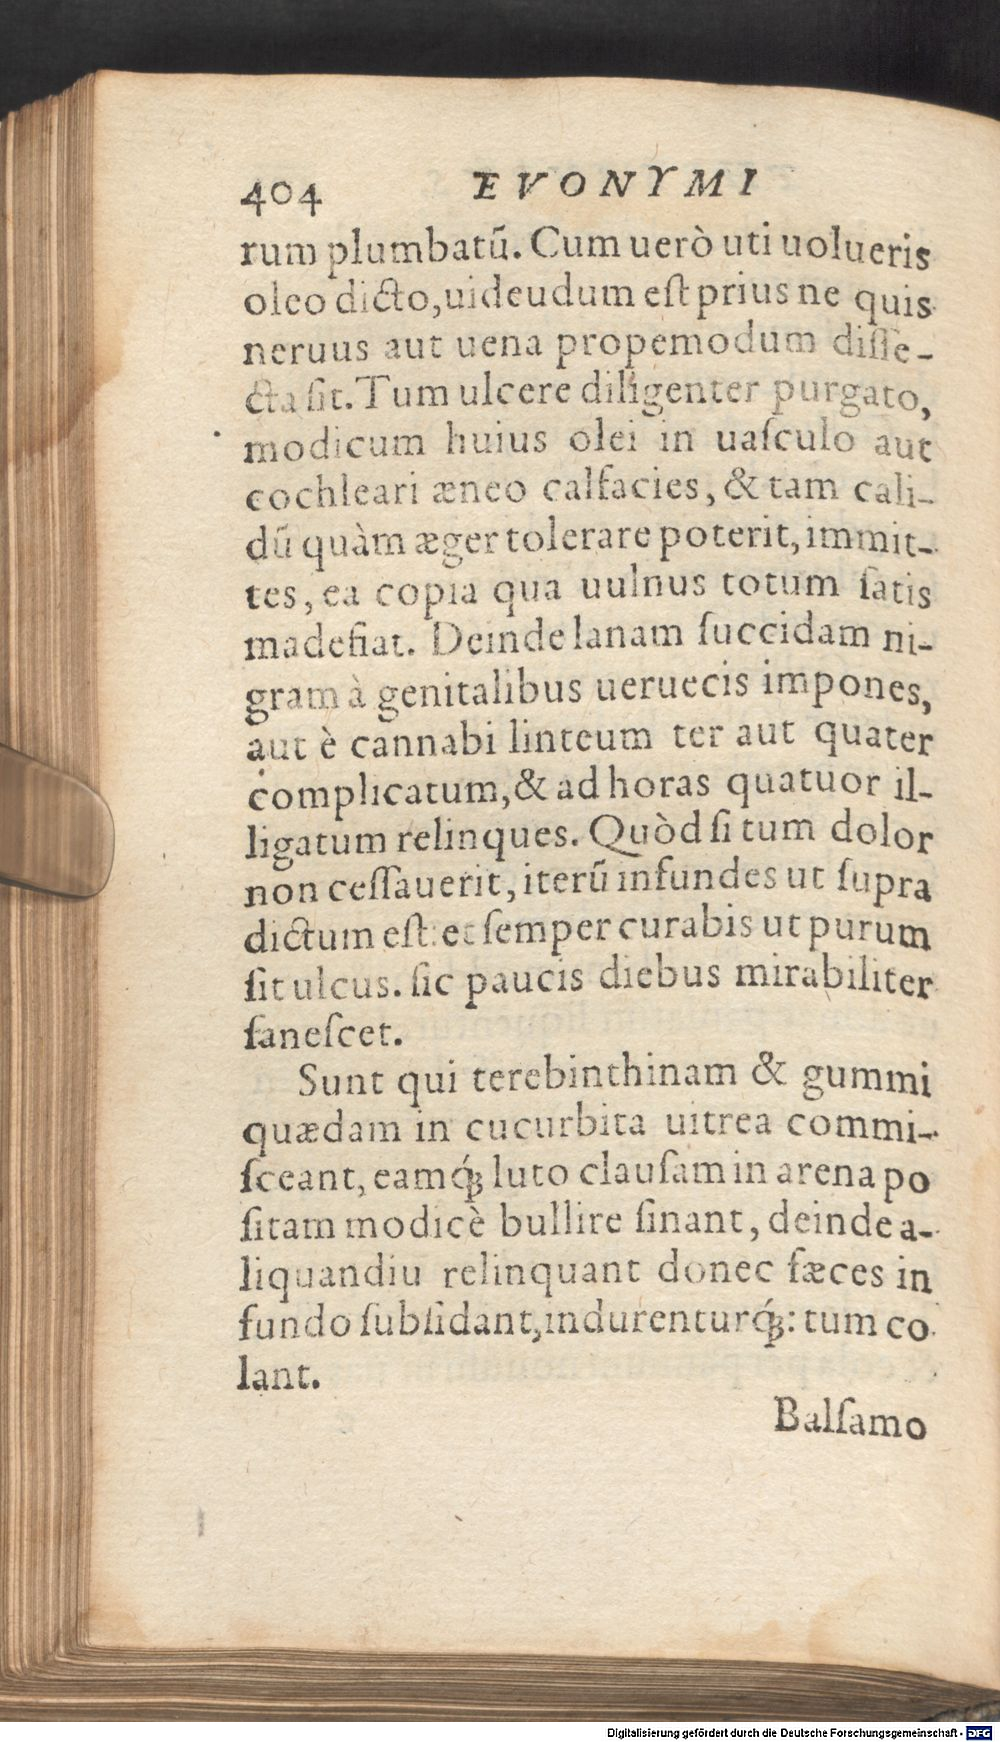 404 EVONYMI
rum plumbatū. Cum uerò uti uolueris
oleo dicto, uideudum eſt prius ne quis
neruus aut uena propemodum diſſe-
cta ſit. Tum ulcere diligenter purgato,
modicum huius olei in uaſculo aut
cochleari æneo calfacies, & tam cali-
dū quàm æger tolerare poterit, immit-
tes, ea copia qua uulnus totum ſatis
madefiat. Deinde lanam ſuccidam ni-
gram à genitalibus ueruecis impones,
aut è cannabi linteum ter aut quater
complicatum, & ad horas quatuor il-
ligatum relinques. Quòd ſi tum dolor
non ceſſauerit, iterū infundes ut ſupra
dictum eſt: et ſemper curabis ut purum
ſit ulcus. ſic paucis diebus mirabiliter
ſaneſcet.
Sunt qui terebinthinam & gummi
quædam in cucurbita uitrea commi-
ſceant, eamq́ꝫ luto clauſam in arena po
ſitam modicè bullire ſinant, deinde a-
liquandiu relinquant donec fæces in
fundo ſubſidant, indurenturq́ꝫ: tum co
lant.
Balſamo
Digitalisierung gefördert durch die Deutsche Forschungsgemeinschaft - DFG